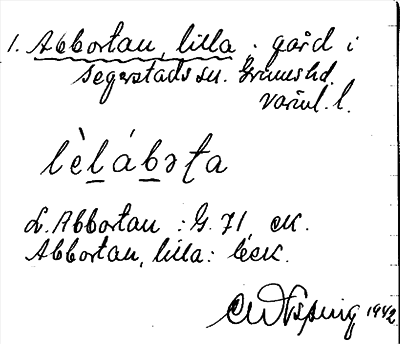 1. Abbortan, lilla. gård i
Segerstads sn. Grums hd.
Värml. l.
lèlábəta
L. Abbortan: G. 71, ek.
Abbortan, lilla: leck.
1942